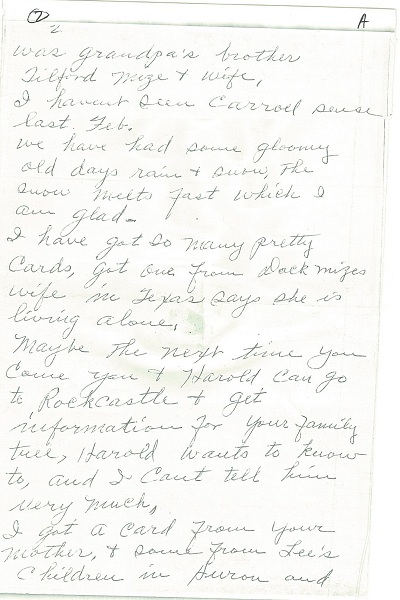 2 A
2
was grandpa's brother
Tilford Mize & wife,
I havent seen Carroll sense
last. Feb.
we have had some gloomy
old days rain & snow, The
snow melts fast which I
am glad.
I have got so many pretty
Cards, got one from Dock mizes
wife in Texas says she is
living alone,.
Maybe The next time you
Come you & Harold can go
to Rockcastle & get
information for your family
tree, Harold wants to know
to, and I Cant tell him
very much,
I got a card from your
mother, & some from Lee's
Children in Huron and